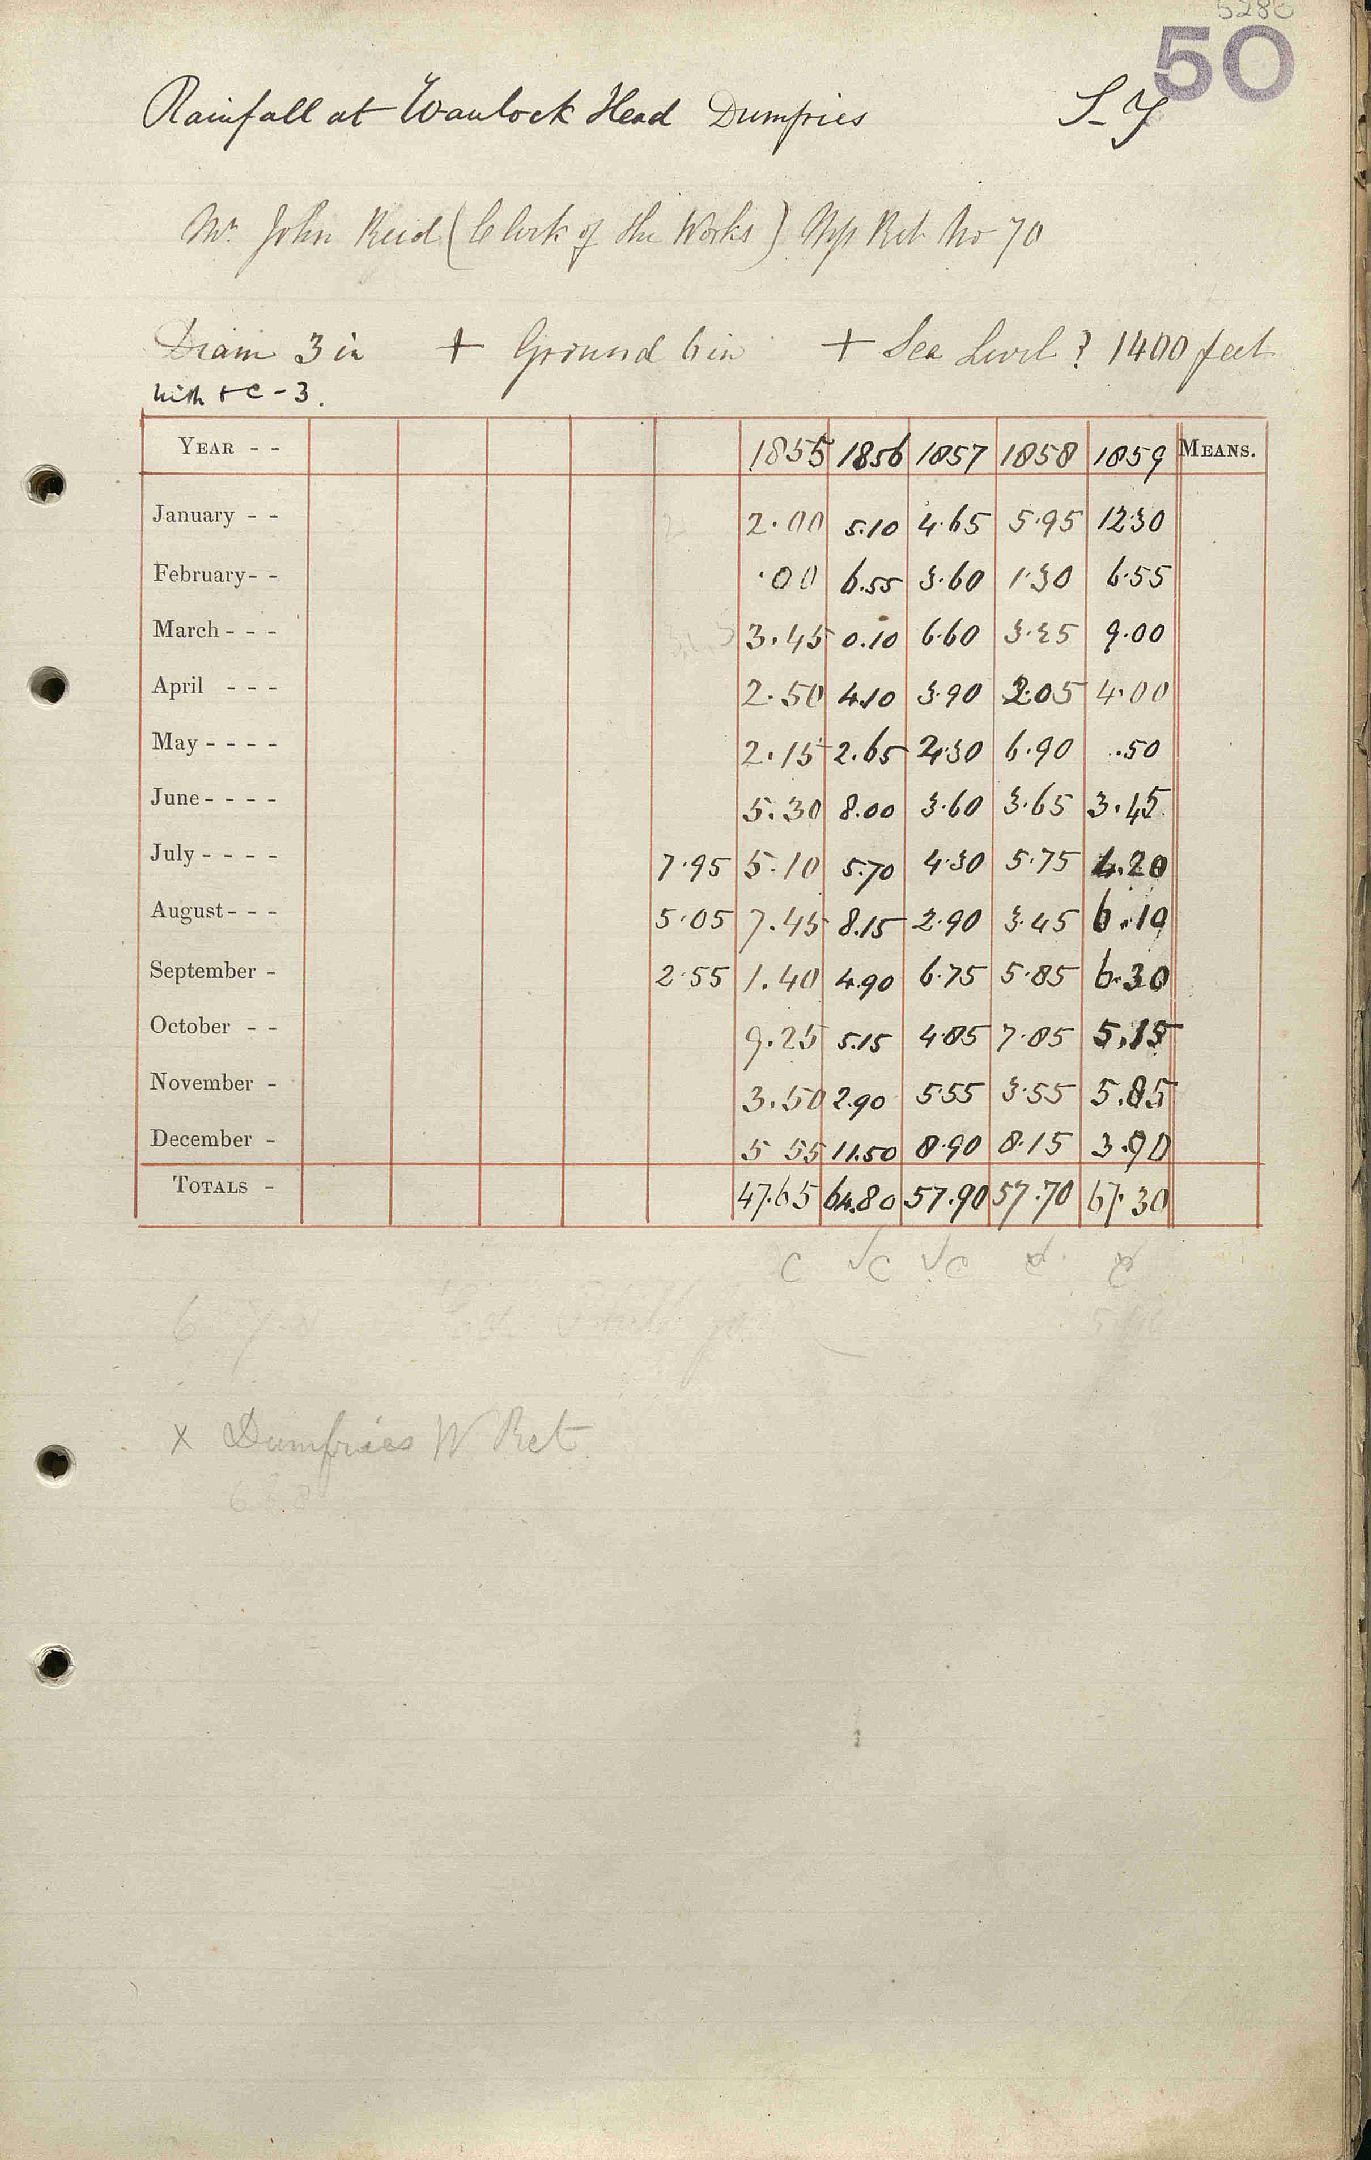 5280
50
Rainfall at Wanlock Head Dumfries S-Y
Mr. John Reid (Clerk of the Works) Ret No 70
Diam 3 in + Ground 6 in + Sea Level ? 1400 feet
YEAR - - 1855 1856 1857 1858 1859 MEANS.
January - - 2.00 5.10 4.65 5.95 12.30
February - - .00 6.55 3.60 1.30 6.55
March - - - 3.45 0.10 6.60 3.25 9.00
April - - - 2.50 4.10 3.90 2.05 4.00
May - - - - 2.15 2.65 2.30 6.90 .50
June - - - - 5.30 8.00 3.60 3.65 3.45
July - - - - 7.95 5.10 5.70 4.30 5.75 4.20
August - - - 5.05 7.45 8.15 2.90 3.45 6.10
September - 2.55 1.40 4.90 6.75 5.85 6.30
October - - 9.25 5.15 4.85 7.85 5.15
November - 3.50 2.90 5.55 3.55 5.85
December - 5 55 11.50 8.90 8.15 3.90
TOTALS - 47.65 64.80 57.90 57.70 67.30
C √C √C
x Dumfries W Ret